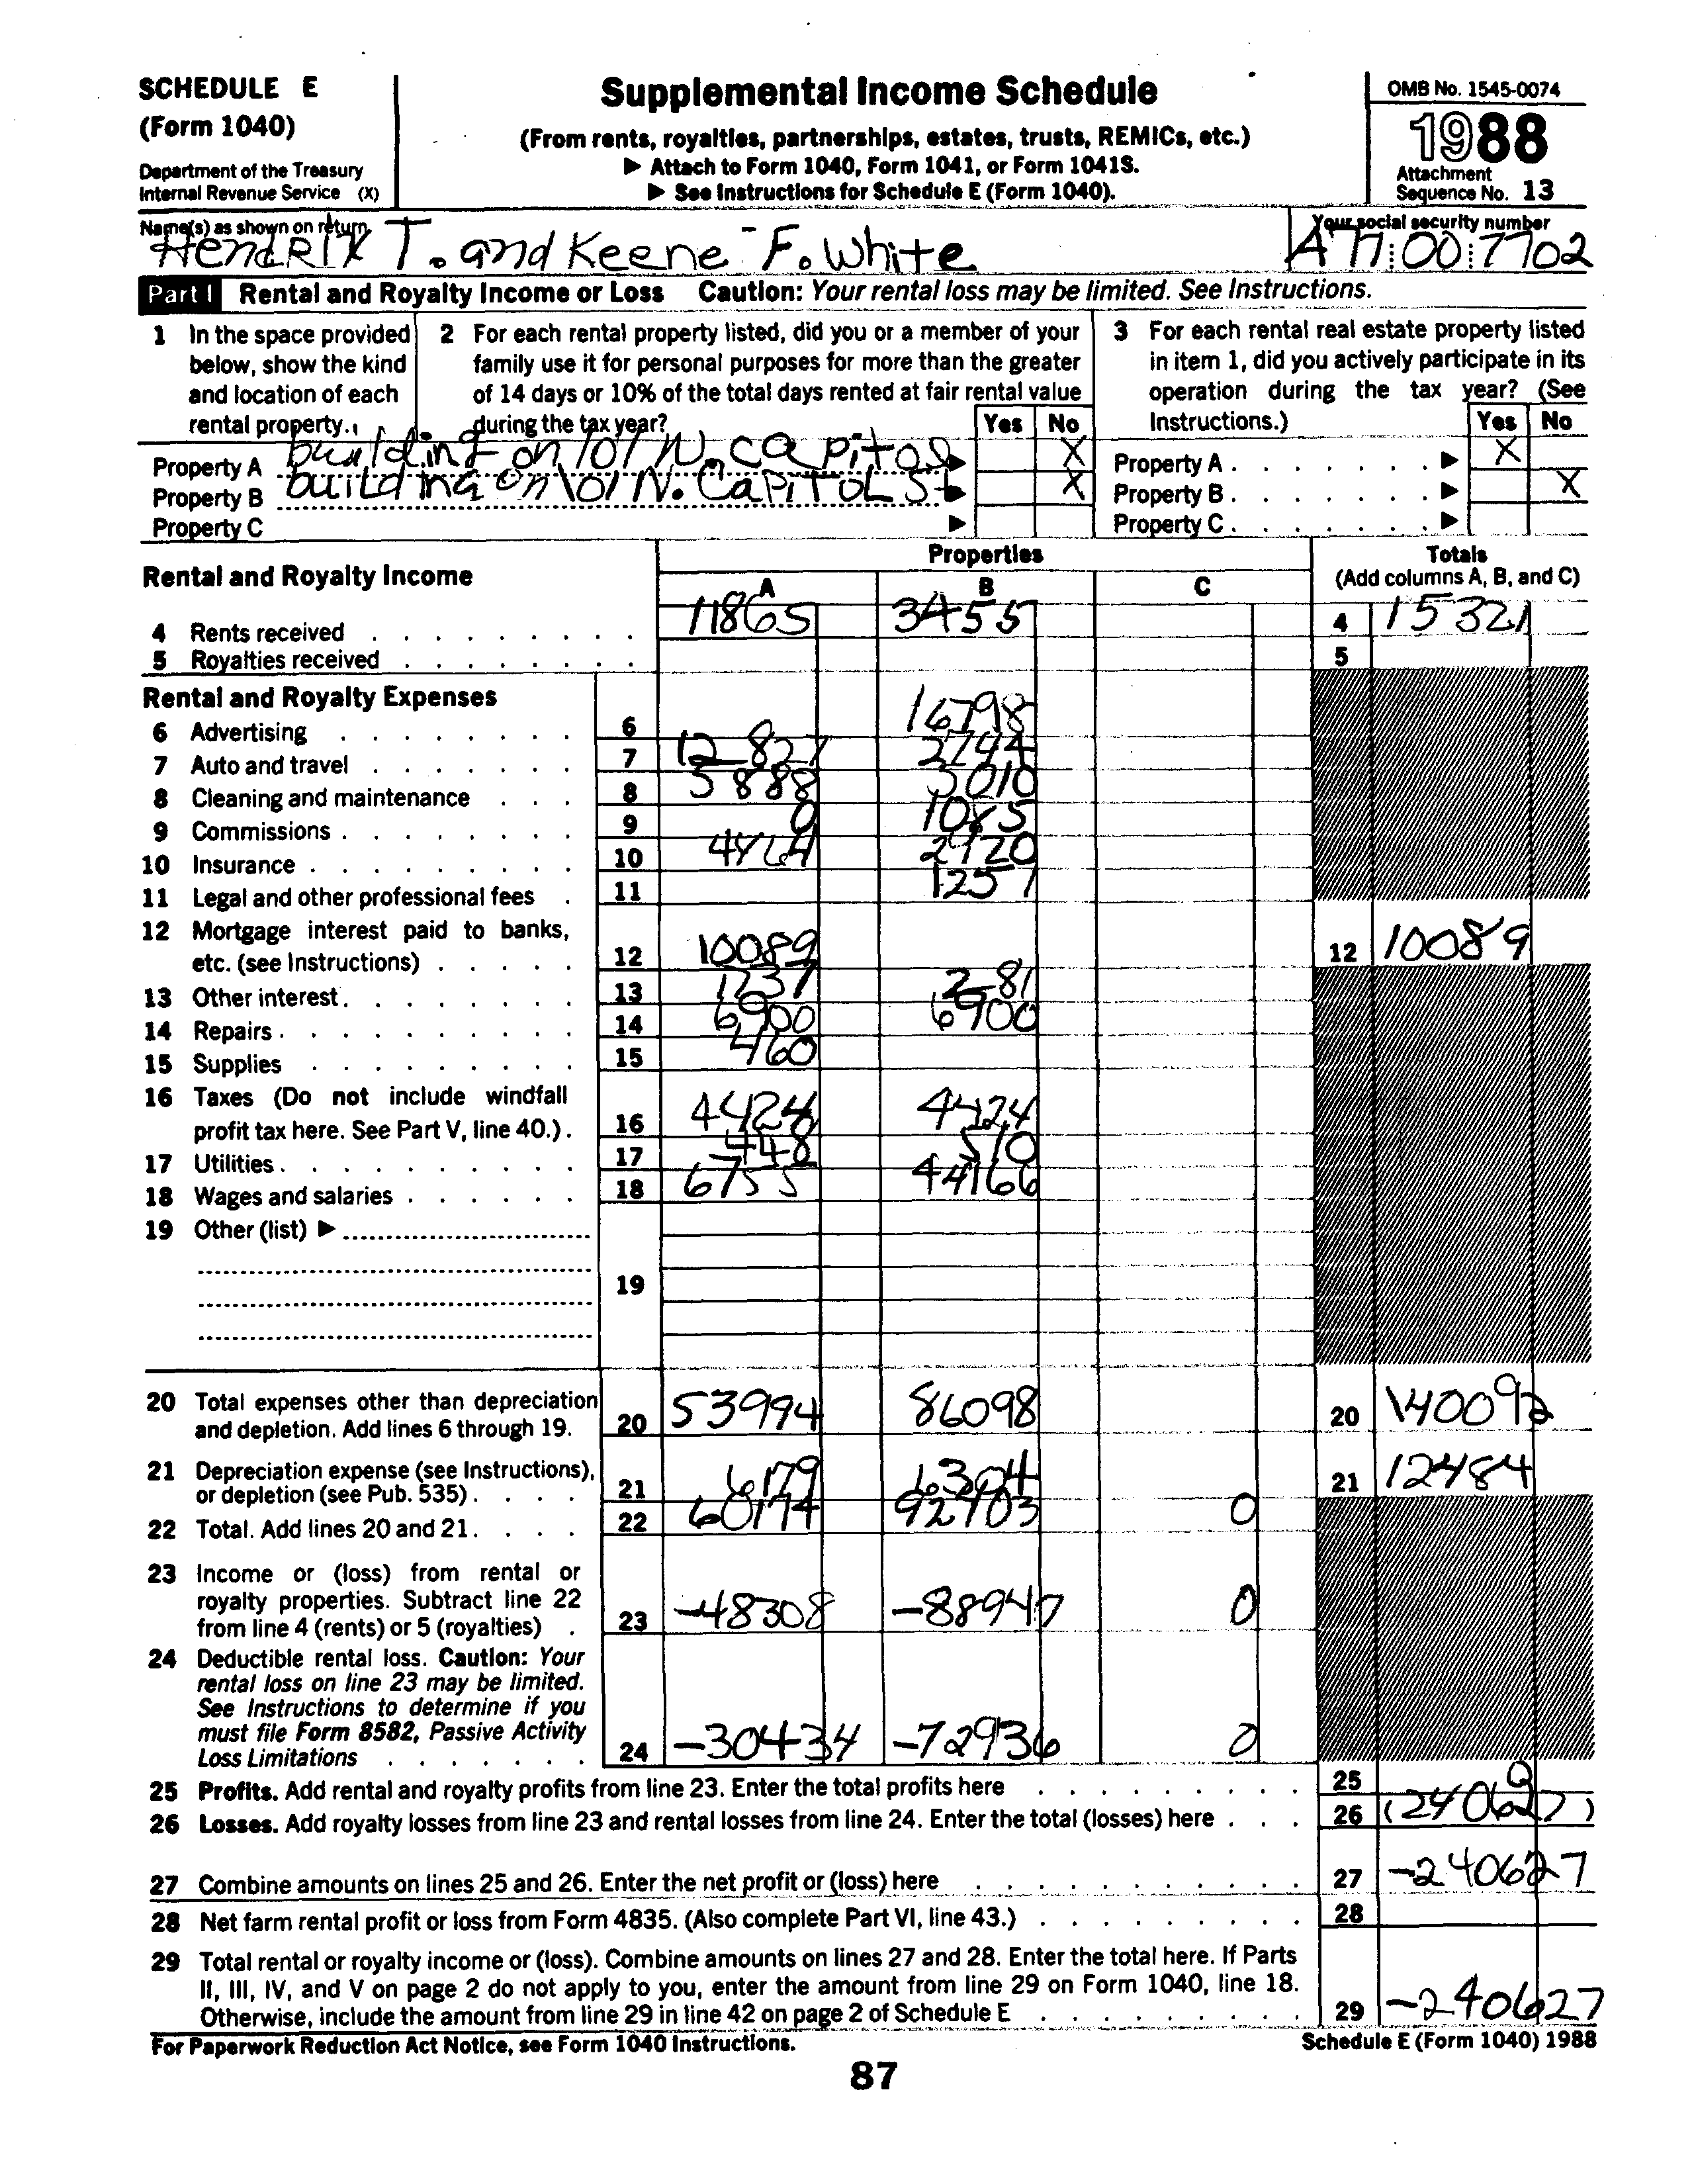 SCHEDULE E
(Form 1040)
Department of the Treasury
Internal Revenue Service (X)
Supplemental Income Schedule
(From rents, royalties, partnerships, estates, trusts, REMICs, etc.)
▶ Attach to Form 1040, Form 1041, or Form 1041S.
▶ See Instructions for Schedule E (Form 1040).
OMB No. 1545-0074
1988
Attachment
Sequence No. 13
Name(s) as shown on return
HendRIX T. and Keene F. White
Your social security number
00 7702
Part I Rental and Royalty Income or Loss Caution: Your rental loss may be limited. See Instructions.
1 In the space provided
below, show the kind
and location of each
rental property.
2 For each rental property listed, did you or a member of your
family use it for personal purposes for more than the greater
of 14 days or 10% of the total days rented at fair rental value
during the tax year?
Yes No
3 For each rental real estate property listed
in item 1, did you actively participate in its
operation during the tax year? (See
Instructions.)
Yes No
Property A building on 101 N. Capitol ▶ X
Property B building on 101 N. CaPITOL St ▶ X
Property C ▶
Property A . . . . . . . ▶ X
Property B . . . . . . . ▶ X
Property C . . . . . . . ▶
Rental and Royalty Income
Properties
A B C
Totals
(Add columns A, B, and C)
4 Rents received 11865 3455 4 15321
5 Royalties received 5
Rental and Royalty Expenses
6 Advertising 6 16798
7 Auto and travel 7 12827 2744
8 Cleaning and maintenance 8 5888 5010
9 Commissions 9 0
10 Insurance 10
11 Legal and other professional fees 11 1257
12 Mortgage interest paid to banks,
etc. (see Instructions) 12 10089 12 10089
13 Other interest 13 1237 281
14 Repairs 14 6900 6900
15 Supplies 15 460
16 Taxes (Do not include windfall
profit tax here. See Part V, line 40.) 16 4424 4424
17 Utilities 17 448 510
18 Wages and salaries 18 6755 44166
19 Other (list) ▶
19
20 Total expenses other than depreciation
and depletion. Add lines 6 through 19. 20 53994 86098 20 140092
21 Depreciation expense (see Instructions),
or depletion (see Pub. 535) 21 6179 6304 21 12484
22 Total. Add lines 20 and 21. 22 60174 92403 0
23 Income or (loss) from rental or
royalty properties. Subtract line 22
from line 4 (rents) or 5 (royalties) 23 -48308 -88947 0
24 Deductible rental loss. Caution: Your
rental loss on line 23 may be limited.
See Instructions to determine if you
must file Form 8582, Passive Activity
Loss Limitations 24 -30434 -72936 0
25 Profits. Add rental and royalty profits from line 23. Enter the total profits here 25 0
26 Losses. Add royalty losses from line 23 and rental losses from line 24. Enter the total (losses) here 26 (240627)
27 Combine amounts on lines 25 and 26. Enter the net profit or (loss) here 27 -240627
28 Net farm rental profit or loss from Form 4835. (Also complete Part VI, line 43.) 28
29 Total rental or royalty income or (loss). Combine amounts on lines 27 and 28. Enter the total here. If Parts
II, III, IV, and V on page 2 do not apply to you, enter the amount from line 29 on Form 1040, line 18.
Otherwise, include the amount from line 29 in line 42 on page 2 of Schedule E 29 -240627
For Paperwork Reduction Act Notice, see Form 1040 Instructions.
Schedule E (Form 1040) 1988
87